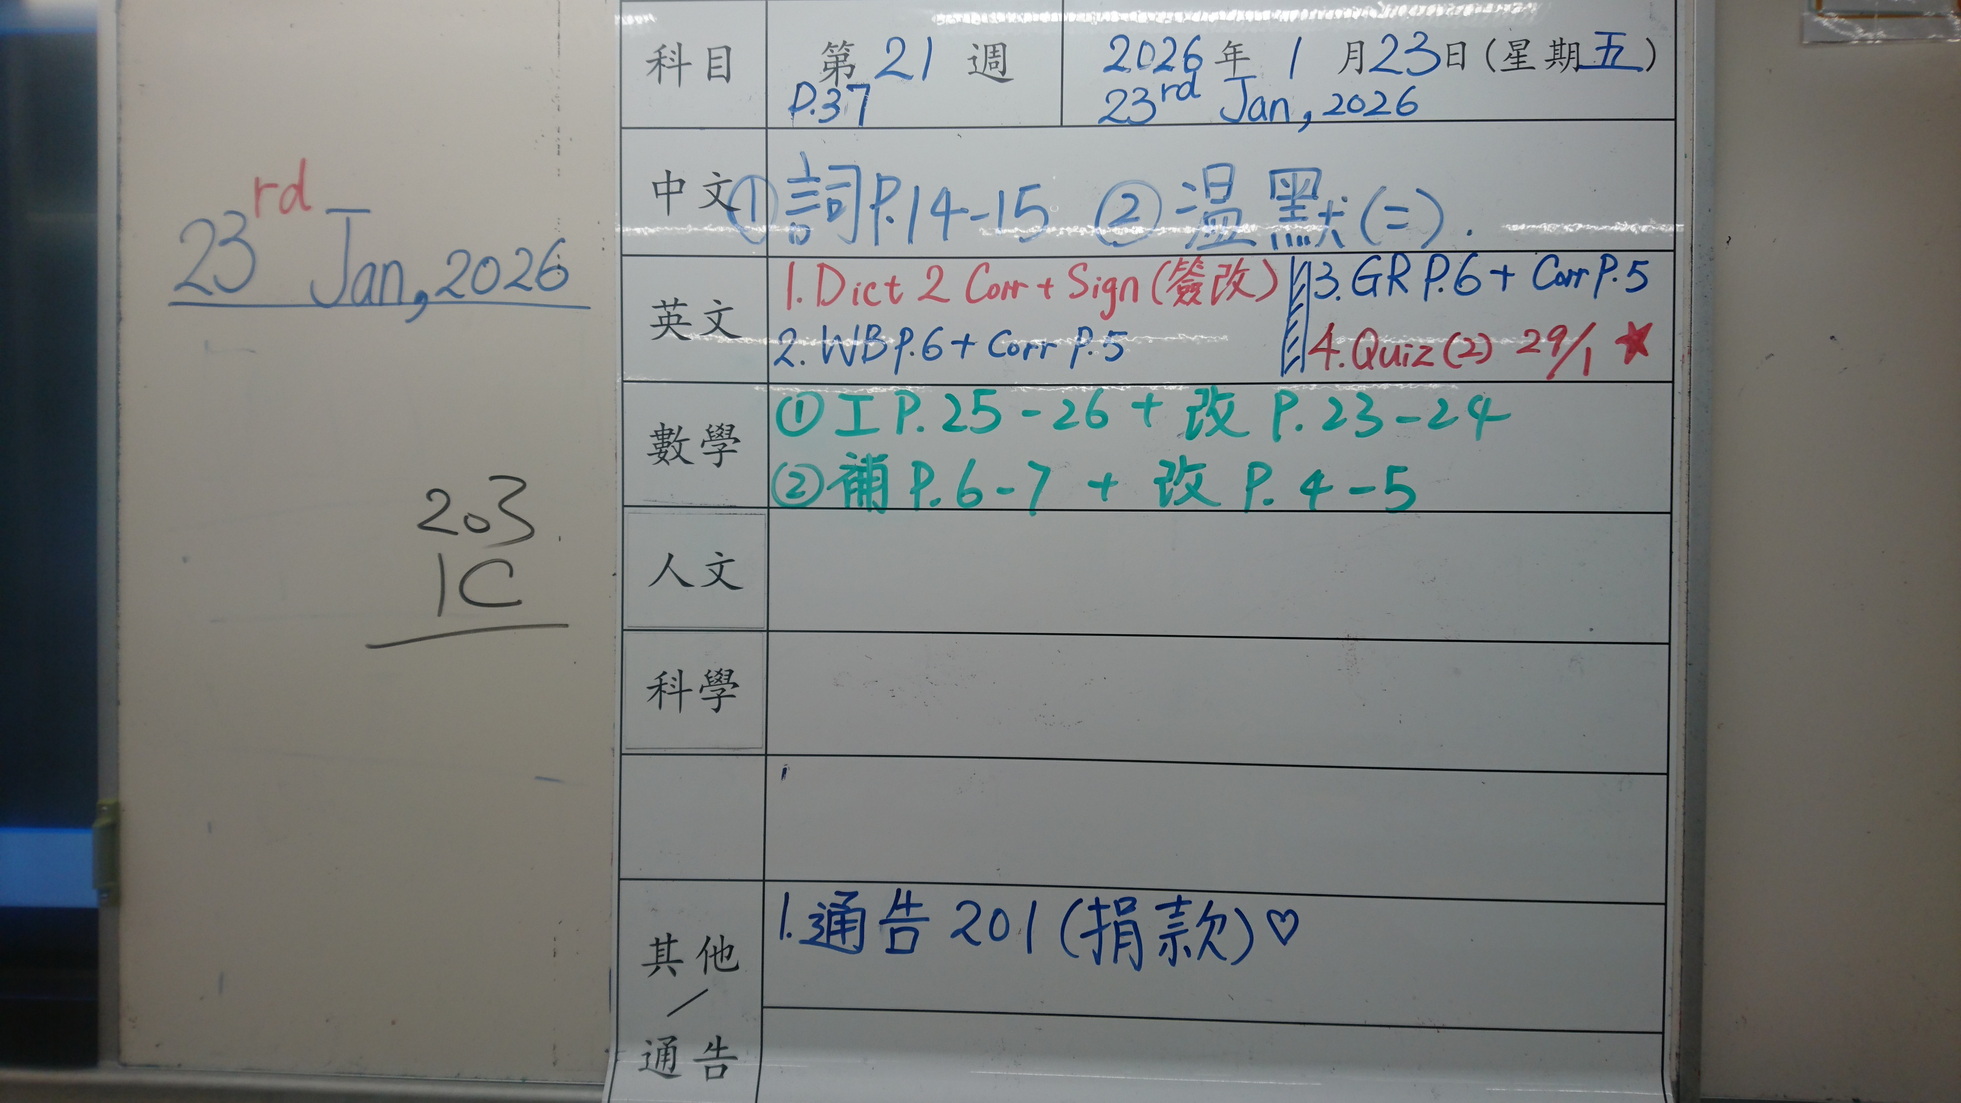 23rd Jan, 2026
203
1C
科目 第 21 週 2026年 1 月23日(星期五)
P.37 23rd Jan, 2026
中文 ①詞P.14-15 ②溫默(二).
英文 1.Dict 2 Corr + Sign(簽改) 3.GR P.6 + Corr P.5
2. WB P.6 + Corr P.5 4.Quiz (2) 29/1 ★
數學 ①工P.25-26 + 改 P.23-24
②補 P.6-7 + 改 P.4-5
人文
科學
其他 1.通告 201 (捐款)♡
/
通告